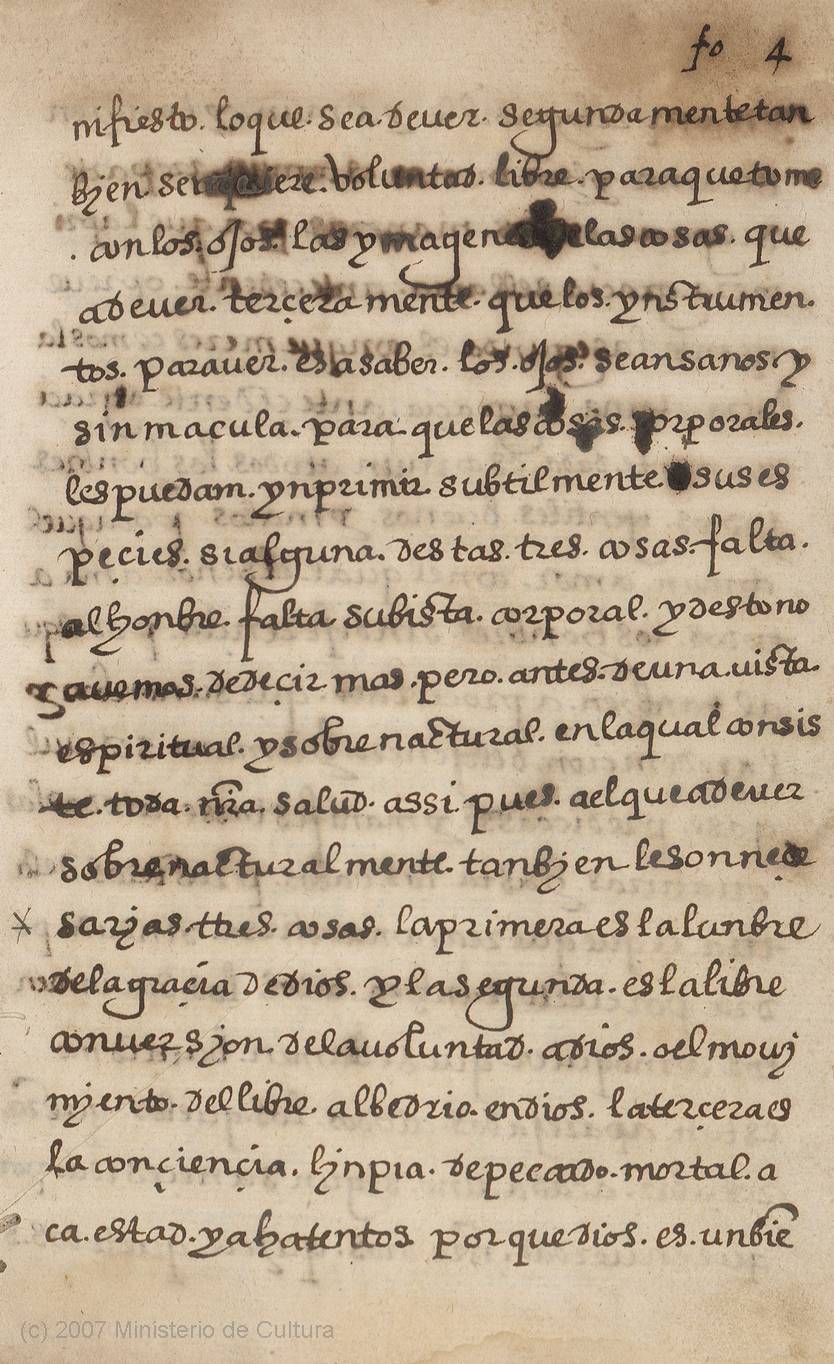 fo 4
nifiesto. loque. sea. dever. segundamente tan
byen se requiere. voluntad. libre. paraquetome
. conlos. ojos. las ymagenes delascosas. que
adever. terçeramente. quelos. ynstrumen.
tos. paraver. esasaber. los. ojos. seansanos. y
sin macula. para. quelascosas. corporales.
lespuedam. ynprimir. subtilmente sus es
peçies. sialguna. destas. tres. cosas. falta.
alhonbre. falta subista. corporal. ydestono
gavemos. dedeçir mas. pero. antes. deuna. uista.
espiritual. ysobrenactural. enlaqual consis
te. toda. nr̃a. salud. assi. pues. aelqueadever
sobrenacturalmente. tanbyen lesonneçe
saryas. ttres. cosas. laprimeraes lalunbre
delagraçia dedios. ylasegunda. eslalibre
conuersyon. delavoluntad. adios. oelmouy
myento. dellibre. albedrio. endios. laterçeraes
la conçiençia. lynpia. depecado. mortal. a
ca. estad. yahatentos porquedios. es. unbiẽ
(c) 2007 Ministerio de Cultura